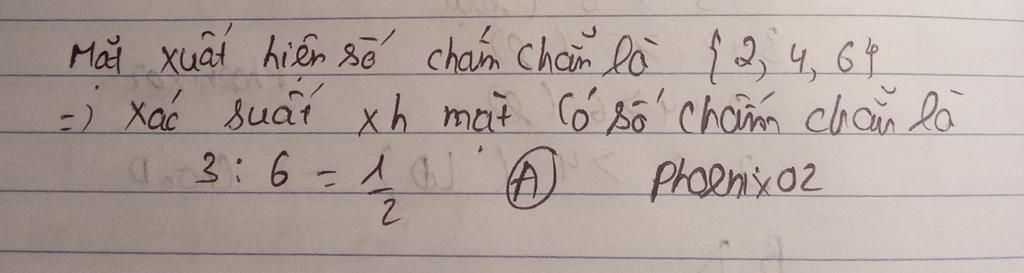 Mặt xuất hiện số chấm chẵn là {2, 4, 6}
=) xác suất xh mặt có số chấm chẵn là
3 : 6 = 1/2 . Ⓐ Phoenix02